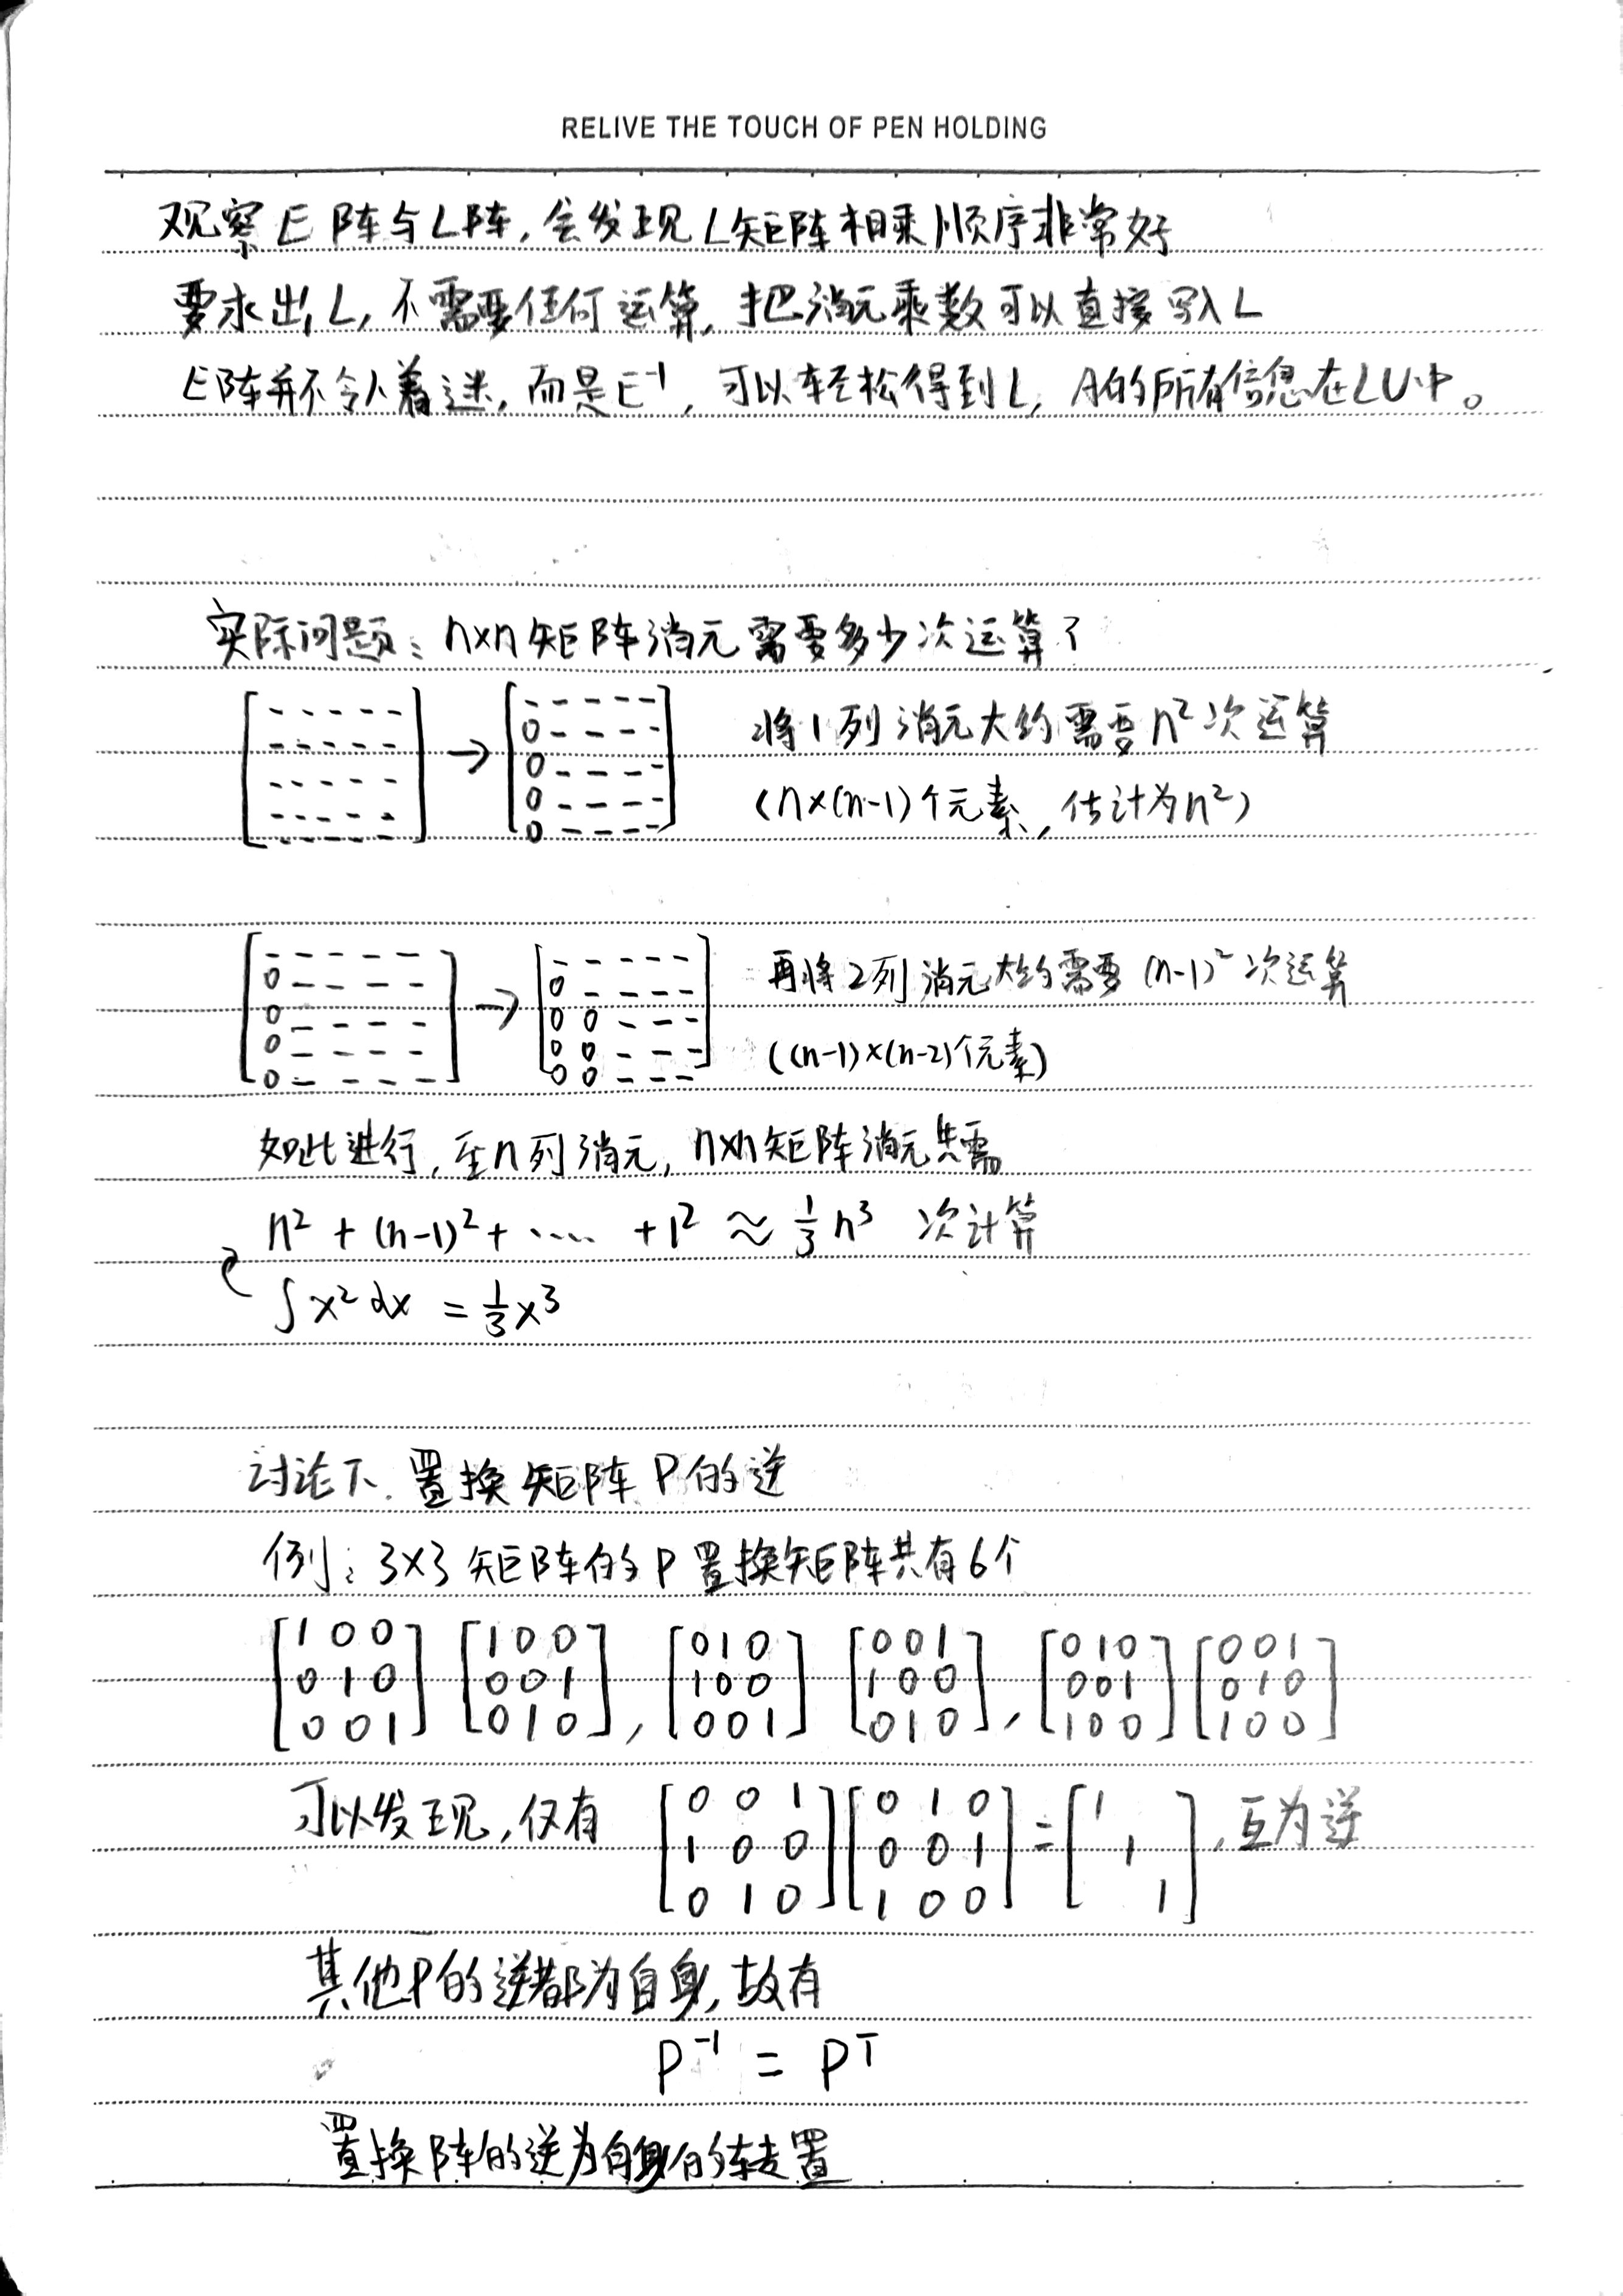 RELIVE THE TOUCH OF PEN HOLDING
观察E阵与L阵，会发现L矩阵相乘顺序非常好
要求出L，不需要任何运算，把消元乘数可以直接写入L
E阵并不令人着迷，而是E⁻¹，可以轻松得到L，A的所有信息在LU中。
实际问题：n×n矩阵消元需要多少次运算？
[- - - - -; - - - - -; - - - - -; - - - - -; - - - - -] → [- - - - -; 0 - - - -; 0 - - - -; 0 - - - -; 0 - - - -] 将1列消元大约需要n²次运算
(n×(n-1)个元素，估计为n²)
[- - - - -; 0 - - - -; 0 - - - -; 0 - - - -; 0 - - - -] → [- - - - -; 0 - - - -; 0 0 - - -; 0 0 - - -; 0 0 - - -] 再将2列消元大约需要(n-1)²次运算
((n-1)×(n-2)个元素)
如此进行，至n列消元，n×n矩阵消元共需
n² + (n-1)² + ····· + 1² ≈ 1/3 n³ 次计算
∫x²dx = 1/3 x³
讨论下．置换矩阵P的逆
例：3×3矩阵的P置换矩阵共有6个
[1 0 0; 0 1 0; 0 0 1] [1 0 0; 0 0 1; 0 1 0], [0 1 0; 1 0 0; 0 0 1] [0 0 1; 1 0 0; 0 1 0], [0 1 0; 0 0 1; 1 0 0] [0 0 1; 0 1 0; 1 0 0]
可以发现，仅有 [0 0 1; 1 0 0; 0 1 0] [0 1 0; 0 0 1; 1 0 0] = [1; 1; 1]，互为逆
其他P的逆都为自身，故有
P⁻¹ = Pᵀ
置换阵的逆为自身的转置